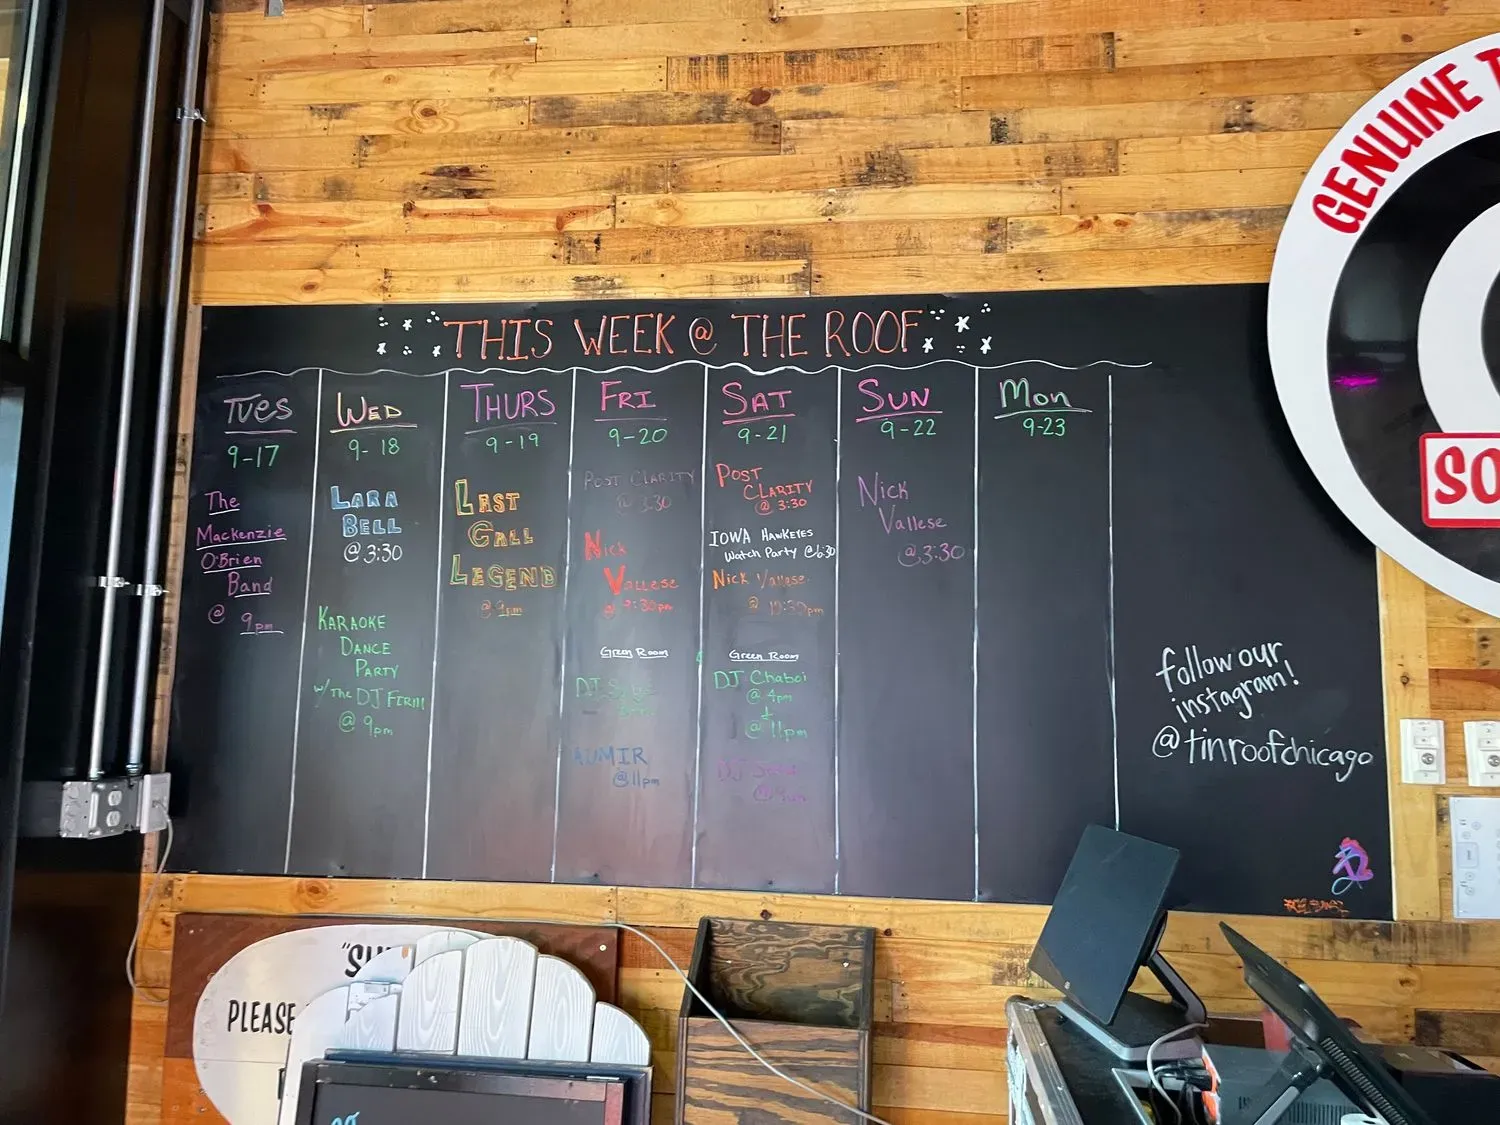 THIS WEEK @ THE ROOF
TUES
9-17
The
Mackenzie
O'Brien
Band
@ 9pm
WED
9-18
LARA
BELL
@ 3:30
KARAOKE
DANCE
PARTY
w/ THE DJ FIRM
@ 9pm
THURS
9-19
LAST
CALL
LEGEND
@ 9pm
FRI
9-20
POST CLARITY
@ 3:30
Nick
Vallese
@ 9:30pm
Green Room
DJ
@11pm
SAT
9-21
POST
CLARITY
@ 3:30
IOWA HAWKEYES
Watch Party @ 6:30
Nick Vallese
@ 10:30pm
Green Room
DJ Chaboi
@ 4pm
+
@ 11pm
DJ
SUN
9-22
Nick
Vallese
@ 3:30
Mon
9-23
follow our
instagram!
@tinroofchicago
GENUINE
SO
PLEASE